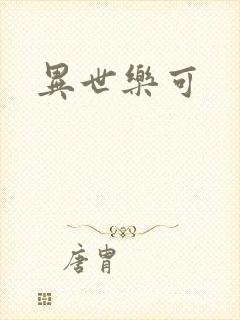 異世樂可
唐胄